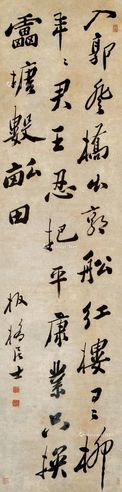 入郭登橋出郭船紅樓日日柳
年年君王忍把平康業只換
雷塘數畝田
板橋居士